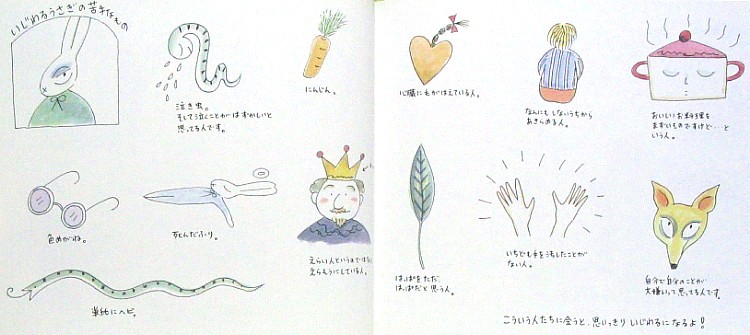 いじわるうさぎの苦手なもの
泣き虫。
そして泣くことがはずかしいと
思ってる人です。
にんじん。
色めがね。
死んだふり。
えらい人というのではなく
えらそうにしている人。
単純にヘビ。
心臓に毛がはえている人。
なんにもしないうちから
あきらめる人。
おいしいお料理を
まずいものですけど…と
いう人。
はっぱをただ
はっぱだと思う人。
いちども手を汚したことが
ない人。
自分で自分のことが
大嫌いって思ってる人です。
こういう人たちに会うと、思いっきり いじわるになるよ!